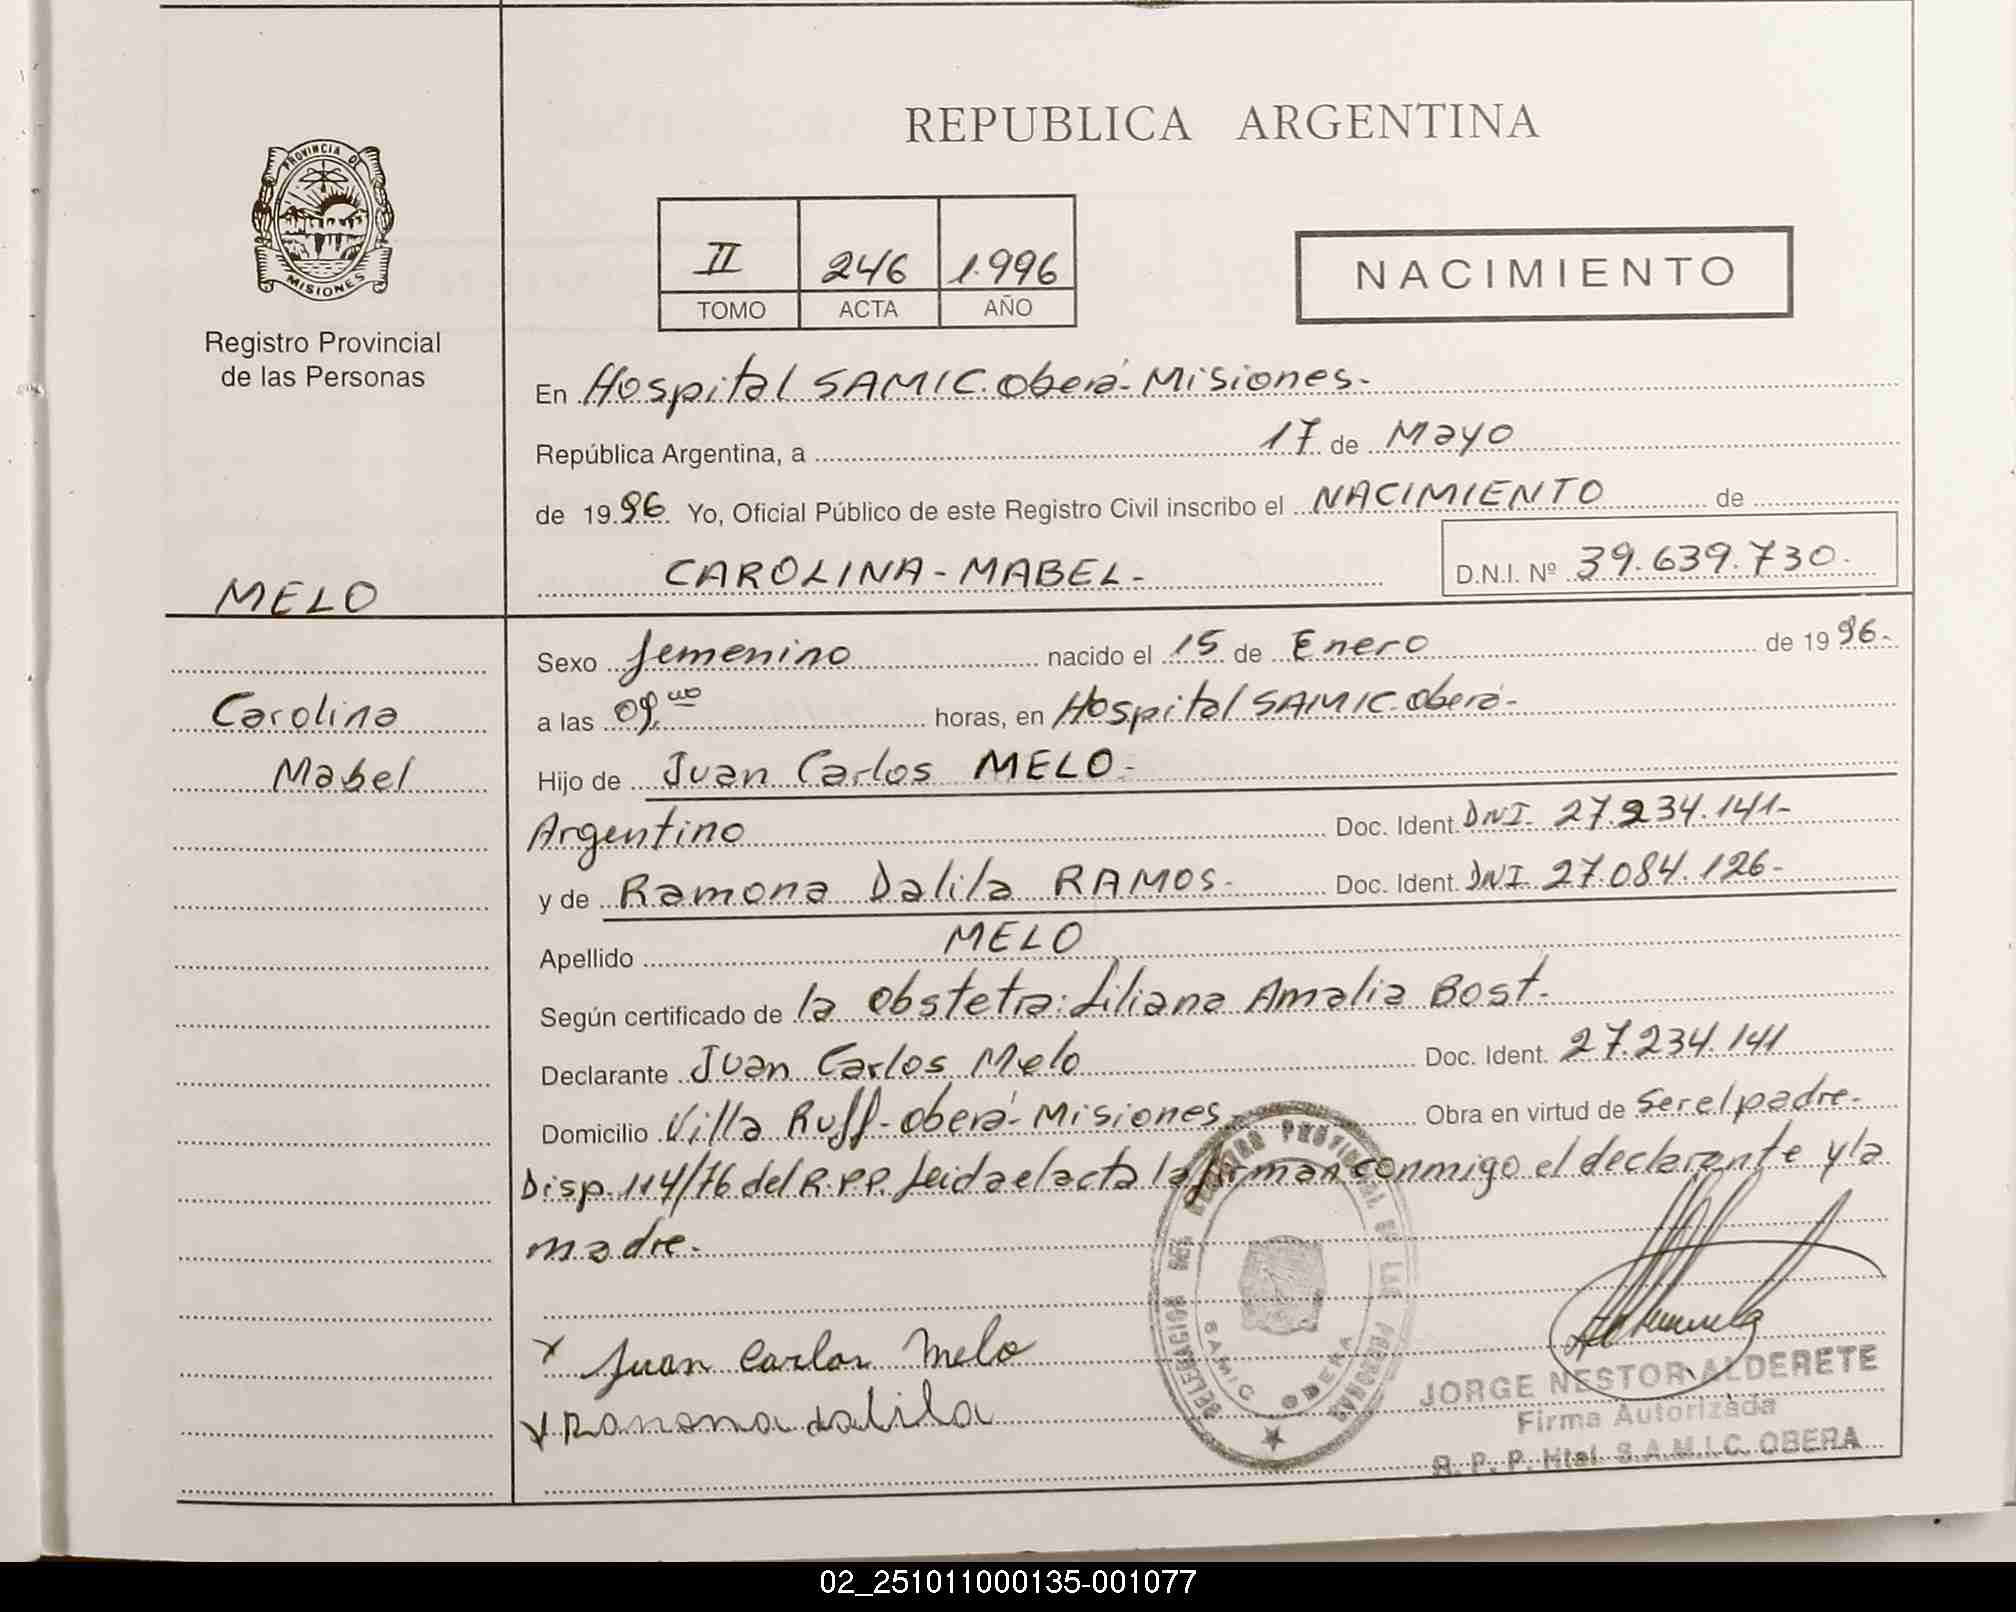 REPUBLICA ARGENTINA
PROVINCIA DE
MISIONES
Registro Provincial
de las Personas
II 246 1.996
TOMO ACTA AÑO
NACIMIENTO
En Hospital SAMIC. Oberá - Misiones.-
República Argentina, a 17 de Mayo
de 1996 Yo, Oficial Público de este Registro Civil inscribo el NACIMIENTO de
CAROLINA - MABEL.- D.N.I. Nº 39.639.730.-
MELO
Carolina
Mabel
Sexo femenino nacido el 15 de Enero de 1996.-
a las 09.00 horas, en Hospital SAMIC. Oberá-
Hijo de Juan Carlos MELO.-
Argentino Doc. Ident. DNI. 27.234.141-
y de Ramona Dalila RAMOS.- Doc. Ident. DNI. 27.084.126-
Apellido MELO
Según certificado de la Obstetra: Liliana Amalia Bost.-
Declarante Juan Carlos Melo Doc. Ident. 27.234.141
Domicilio Villa Ruff - Oberá - Misiones. Obra en virtud de ser el padre.-
Disp. 114/76 del R.P.P. Leida el acta la firman conmigo el declarante y la
madre.-
x Juan Carlos Melo
x Ramona dalila
DELEGACION DEL REGISTRO PROVINCIAL DE LAS PERSONAS
SAMIC OBERA
JORGE NESTOR ALDERETE
Firma Autorizada
R. P. P. Htal. S.A.M.I.C. OBERA
02_251011000135-001077